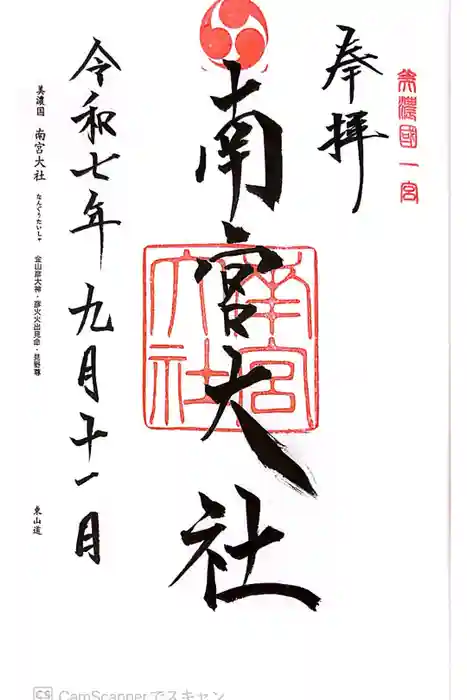 美濃國一宮
奉拝
南宮大社
南宮大社
令和七年九月十一月
美濃国 南宮大社 なんぐうたいしゃ 金山彦大神・彦火火出見命・見野尊
東山道
CS CamScanner でスキャン